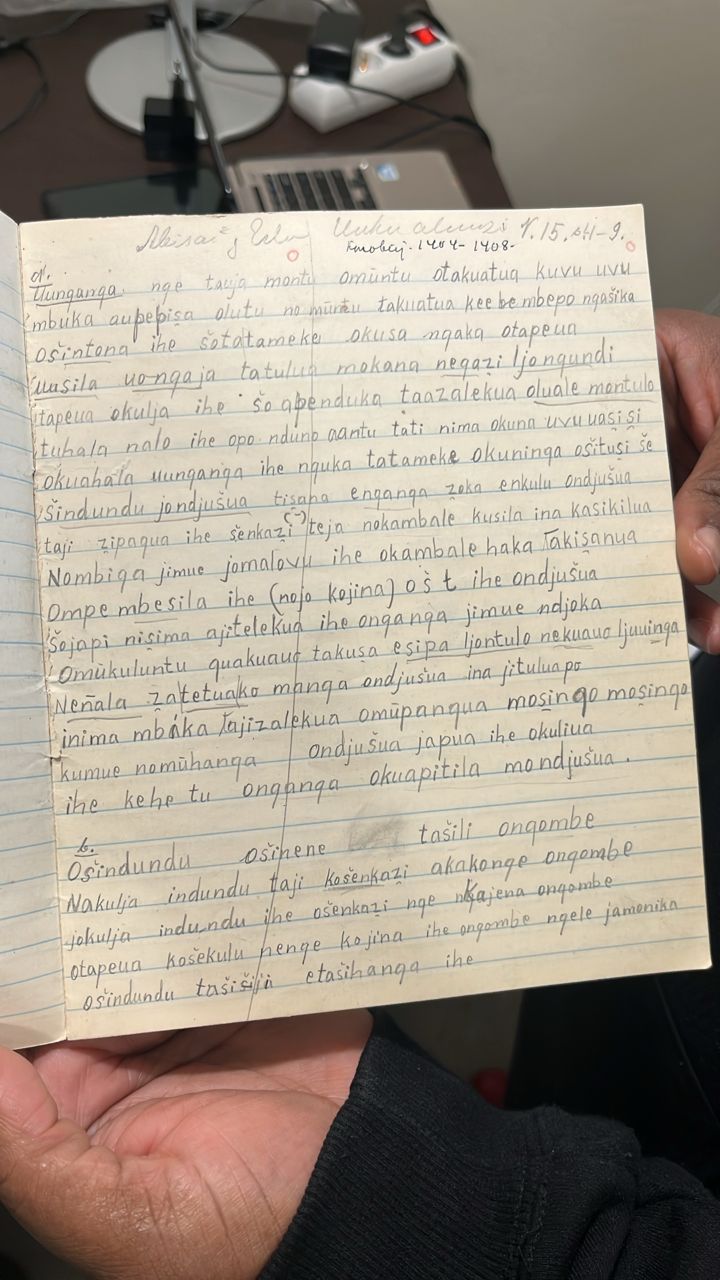 Uukualuuzi V. 15. s4-9.
1404-1408.
a.
Uunganga. nge tauja montu omūntu otakuatua kuvu uvu
mbuka aupepisa olutu no mūntu takuatua kee be mbepo ngašika
ošintona ihe šotatameke okusa ngaka otapeua
uusila uongaja tatulua mokana negazi ljongundi
tapeua okulja ihe šo apenduka taazalekua oluale montulo
tuhala nalo ihe opo nduno aantu tati nima okuna uvu uasiši
okuahala uunganga ihe nguka tatameke okuninga ošitusi še
šindundu jondjušua tisana enganga zoka enkulu ondjušua
taji zipagua ihe šenkazi (-) teja nokambale kusila ina kasikilua
Nombiga jimue jomalovu ihe okambale haka Takisanua
Ompe mbesila ihe (najo kojina) oš t ihe ondjušua
šojapi nisima ajitelekua ihe onganga jimue ndjoka
Omūkuluntu quakuauo takusa esipa ljontulo nekuauo ljuuinga
Nenala zatetuako manga ondjušua ina jituluapo
inima mbáka Tajizalekua omūpangua mosingo mosingo
kumue nomūhanga ondjušua japua ihe okuliua
ihe kehe tu onganga okuapitila mondjušua.
b.
Ošindundu ošihene tašili ongombe
Nakulja indundu taji košenkazi akakonge ongombe
jokulja indundu ihe ošenkazi nge nkajena ongombe
otapeua košekulu nenge kojina ihe ongombe ngele jamonika
ošindundu tašišiji etašihanga ihe